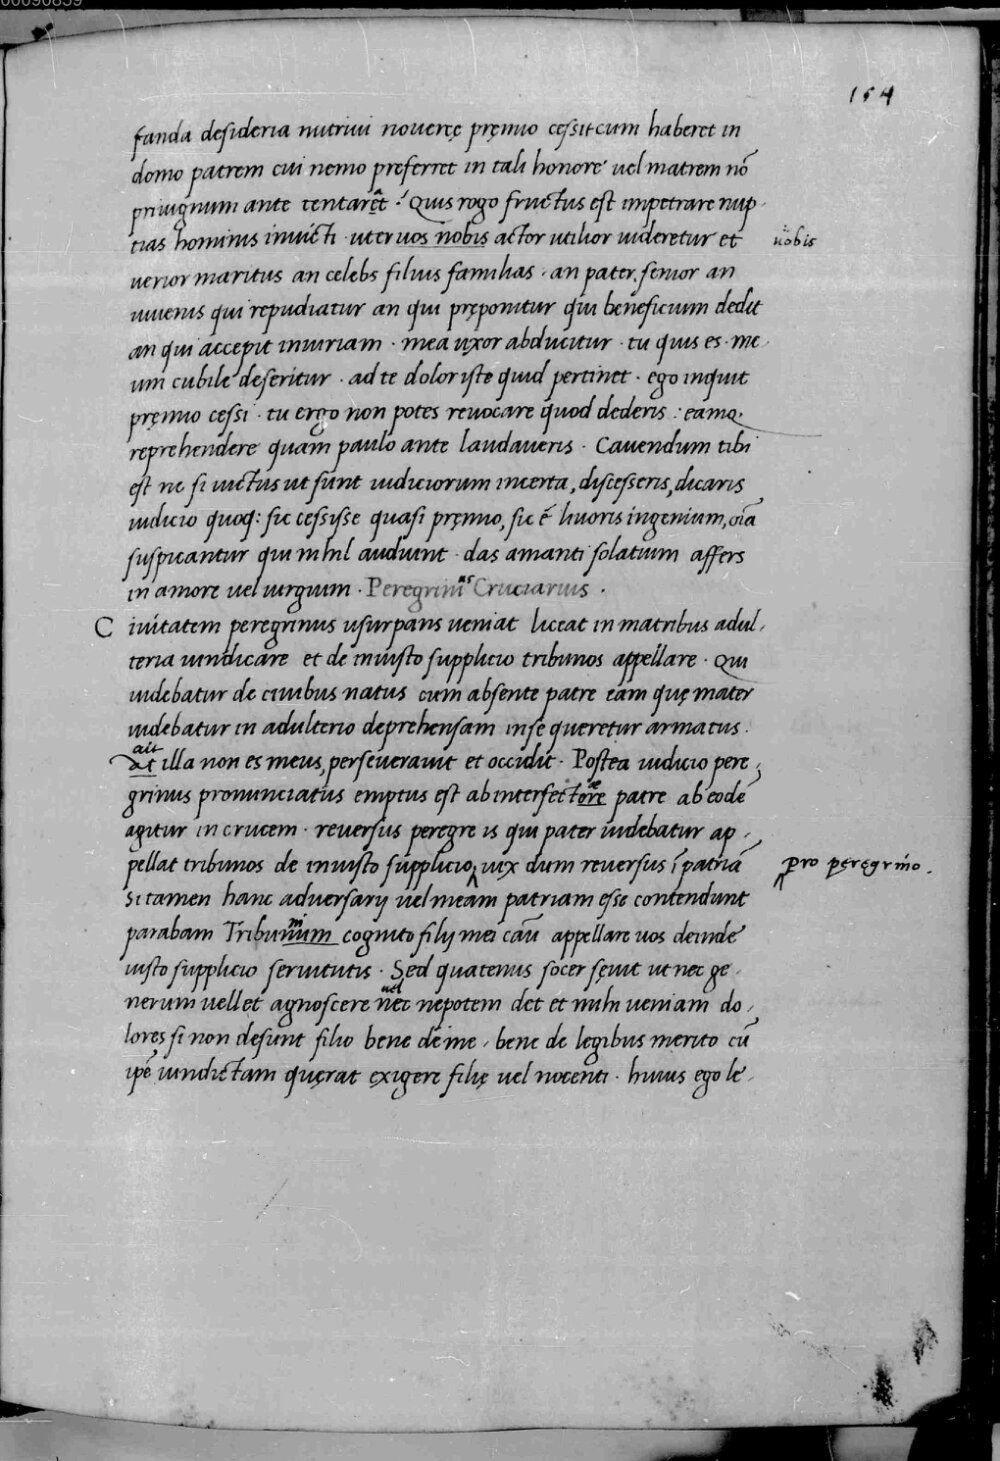 00090839
154
fanda desideria nutriui nouercę pręmio cessit cum haberet in
domo patrem cui nemo preferret in tali honore uel matrem nō
priuignum ante tentaret · Quis rogo fructus est impetrare nup
tias hominis inuicti · uter uos nobis actor utilior uideretur et
nobis
uerior maritus an celebs filius familias · an pater, senior an
iuuenis qui repudiatur an qui pręponitur qui beneficium dedit
an qui accepit iniuriam · mea uxor abducitur · tu quis es · me
um cubile deseritur · ad te dolor iste quid pertinet · ego inquit
pręmio cessi · tu ergo non potes reuocare quod dederis : eamq
reprehendere quam paulo ante laudaueris · Cauendum tibi
est ne si uictus ut sunt iudiciorum incerta, discesseris, dicaris
iudicio quoq: sic cessisse quasi pręmio, sic ē liuoris ingenium, oīa
suspicantur qui nihil audiunt · das amanti solatium affers
in amore uel uirgium · Peregrinus Cruciarius ·
C iuitatem peregrinus usurpans ueniat liceat in matribus adul,
teria uindicare et de iniusto supplicio tribunos appellare · Qui
uidebatur de ciuibus natus cum absente patre eam quę mater
uidebatur in adulterio deprehensam inse queretur armatus ·
ait
at illa non es meus, perseuerauit et occidit · Postea iudicio pere,
grinus pronunciatus emptus est ab interfectore patre ab eodē
agitur in crucem · reuersus peregre is qui pater uidebatur ap,
pellat tribunos de iniusto supplicio, uix dum reuersus ī patriā
pro peregrino .
si tamen hanc aduersarij uel meam patriam esse contendunt
parabam Tribunum cognito filij mei caū appellare uos deinde
iusto supplicio seruitutis · Sed quatenus socer sęuit ut nec ge
uel
nerum uellet agnoscere nec nepotem det et mihi ueniam do,
lores si non desunt filio bene de me, bene de legibus merito cū
ipē uindictam quęrat exigere filię uel nocenti · huius ego le